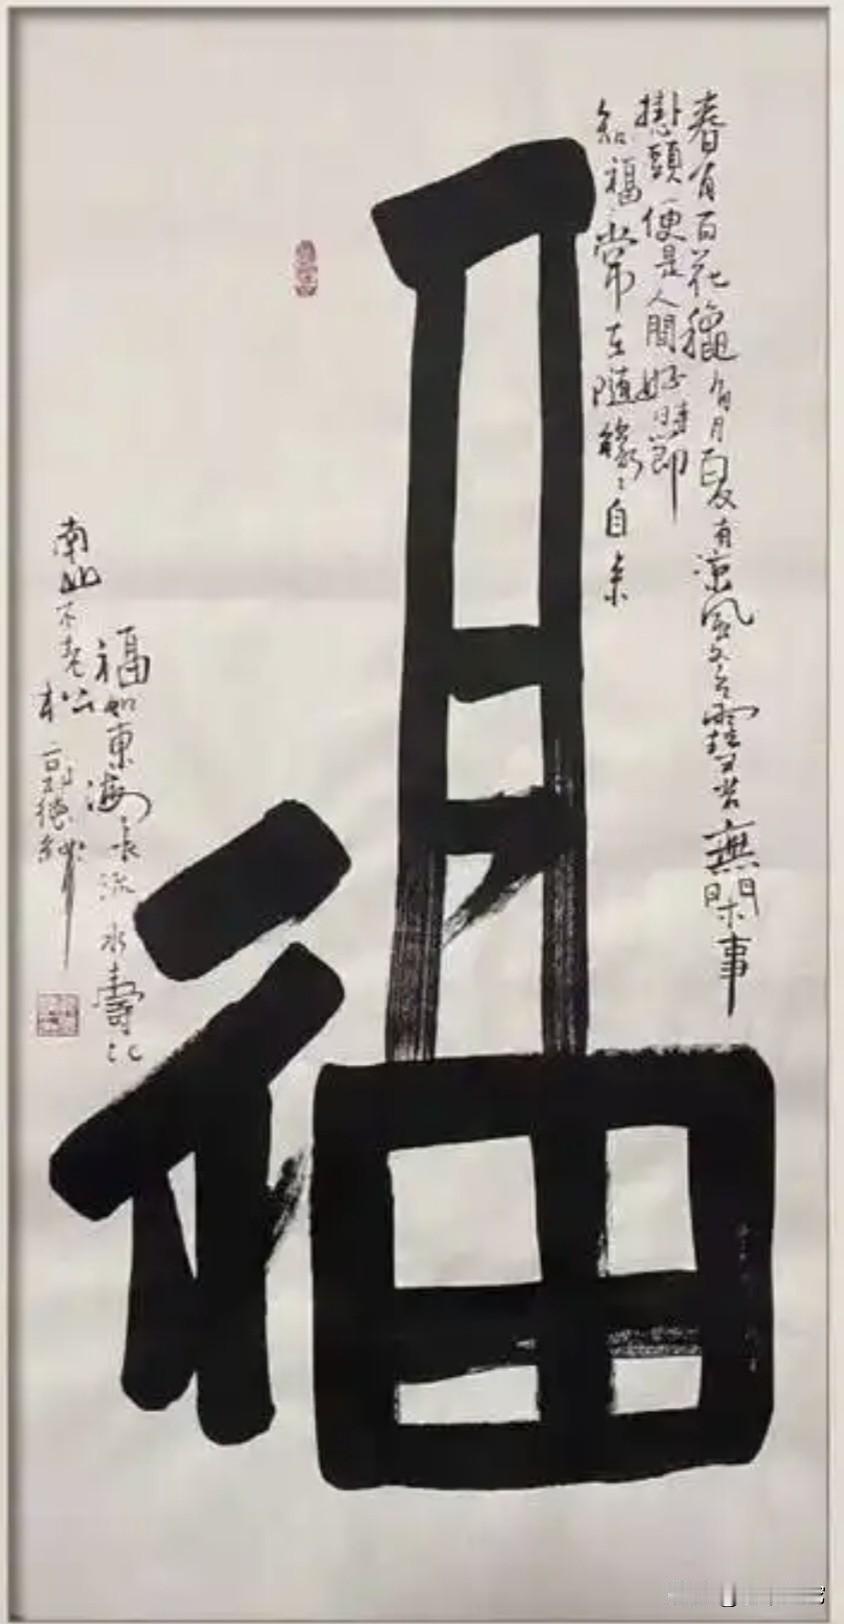 春有百花穐有月夏有凉風冬有雪若無閑事
掛頭便是人間好時節
知福〻常在隨緣〻自来
福
福如東海长流水壽比
南山不老松 郭德綱